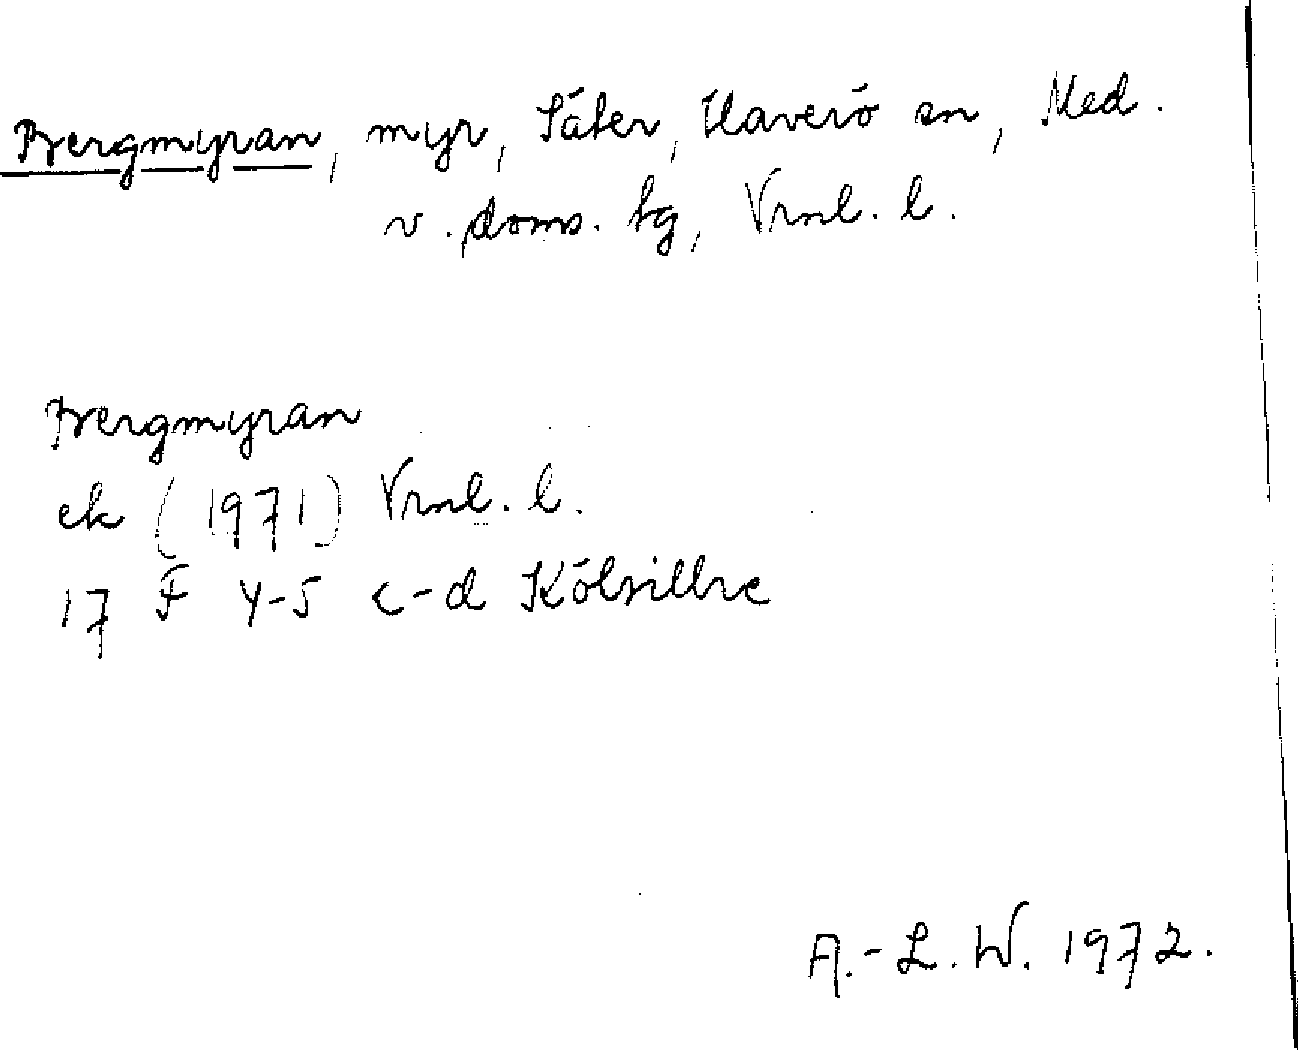 Bergmyran, myr, Säter, Haverö sn, Med.
v. doms. tg, Vrnl. l.
Bergmyran
ek (1971) Vrnl. l.
17 F 4-5 c-d Kölsillre
A.-L. W. 1972.